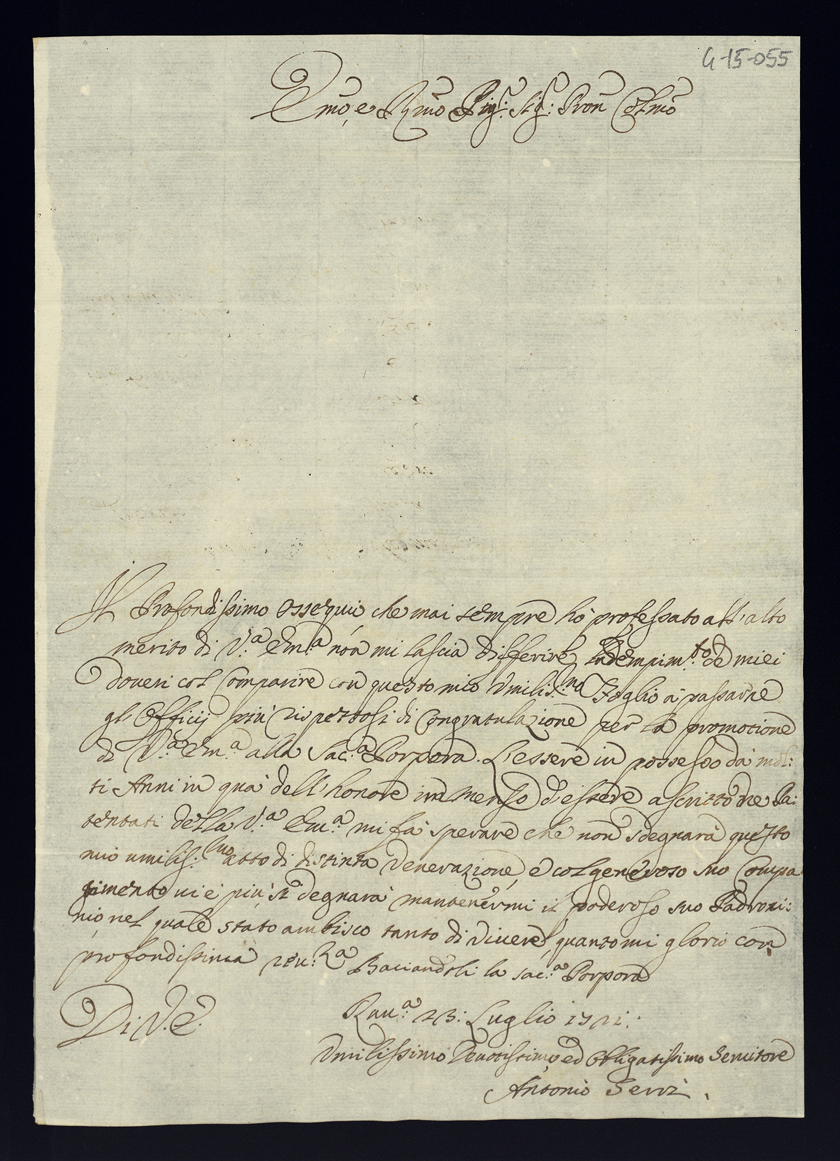 G-15-055
Emo, e Rmo Sig: Sig: Pron Colmo
Il Profondissimo ossequio che mai sempre hò professato all'alto
merito di V.a Em.a non mi lascia differire l'adempim.to de miei
doveri col comparire con questo mio Umilis.mo Foglio à passarne
gl'Officij più rispettosi di Congratulazione per la promotione
di V.a Em.a alla Sac.a Porpora. L'essere in possesso dà mol:
ti Anni in quà dell'honore immenso d'essere ascritto ne Pa:
tentati della V.a Em.a mi fà sperare che non sdegnarà questo
mio umilis:mo atto di distinta Venerazione, e col generoso suo Compa
timento vie più si degnarà mantenermi il poderoso suo Padroci:
nio, nel quale stato ambisco tanto di vivere, quanto mi glorio con
profondissima riv:za Baciandoli la sac.a Porpora
Di V. E.
Rav.a 23: Luglio 1721:
Umilissimo Devotissimo, ed Obligatissimo Servitore
Antonio Serri.